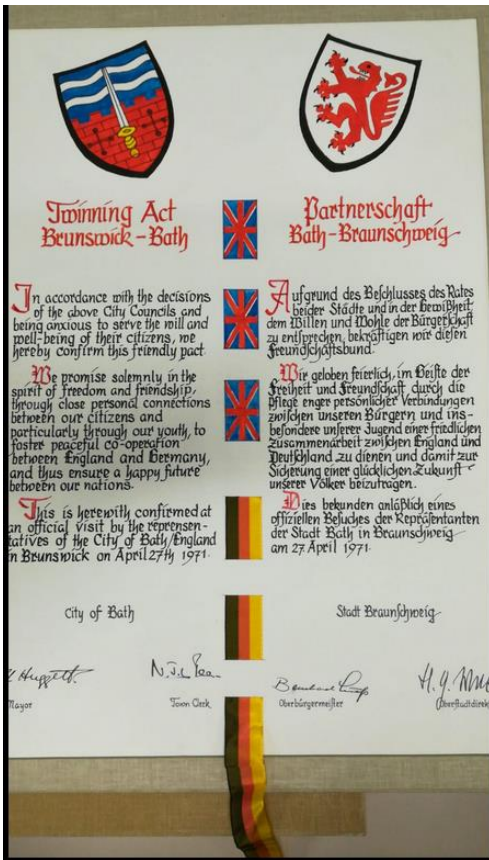 Twinning Act
Brunswick - Bath
In accordance with the decisions
of the above City Councils and
being anxious to serve the will and
well-being of their citizens, we
hereby confirm this friendly pact.
We promise solemnly in the
spirit of freedom and friendship,
through close personal connections
between our citizens and
particularly through our youth, to
foster peaceful co-operation
between England and Germany,
and thus ensure a happy future
between our nations.
This is herewith confirmed at
an official visit by the reprensen-
tatives of the City of Bath/England
in Brunswick on April 27th 1971.
City of Bath
Huggett
Mayor
Town Clerk
Partnerschaft
Bath-Braunschweig
Aufgrund des Beschlusses des Rates
beider Städte und in der Gewißheit
dem Willen und Wohle der Bürgerschaft
zu entsprechen, bekräftigen wir diesen
Freundschaftsbund.
Wir geloben feierlich, im Geiste der
Freiheit und Freundschaft, durch die
Pflege enger persönlicher Verbindungen
zwischen unseren Bürgern und ins-
besondere unserer Jugend einer friedlichen
Zusammenarbeit zwischen England und
Deutschland zu dienen und damit zur
Sicherung einer glücklichen Zukunft
unserer Völker beizutragen.
Dies bekunden anläßlich eines
offiziellen Besuches der Repräsentanten
der Stadt Bath in Braunschweig
am 27. April 1971.
Stadt Braunschweig
Oberbürgermeister
Oberstadtdirek